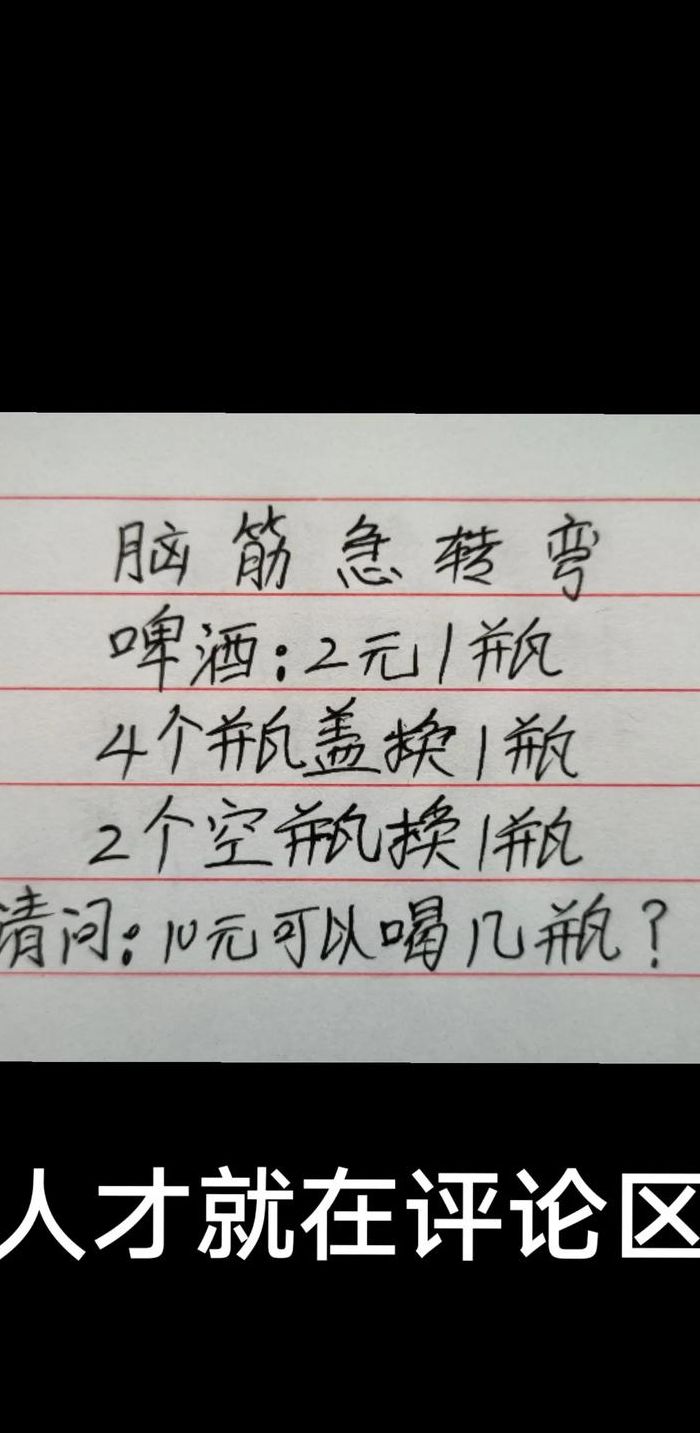 脑筋急转弯
啤酒:2元1瓶
4个瓶盖换1瓶
2个空瓶换1瓶
请问:10元可以喝几瓶?
人才就在评论区